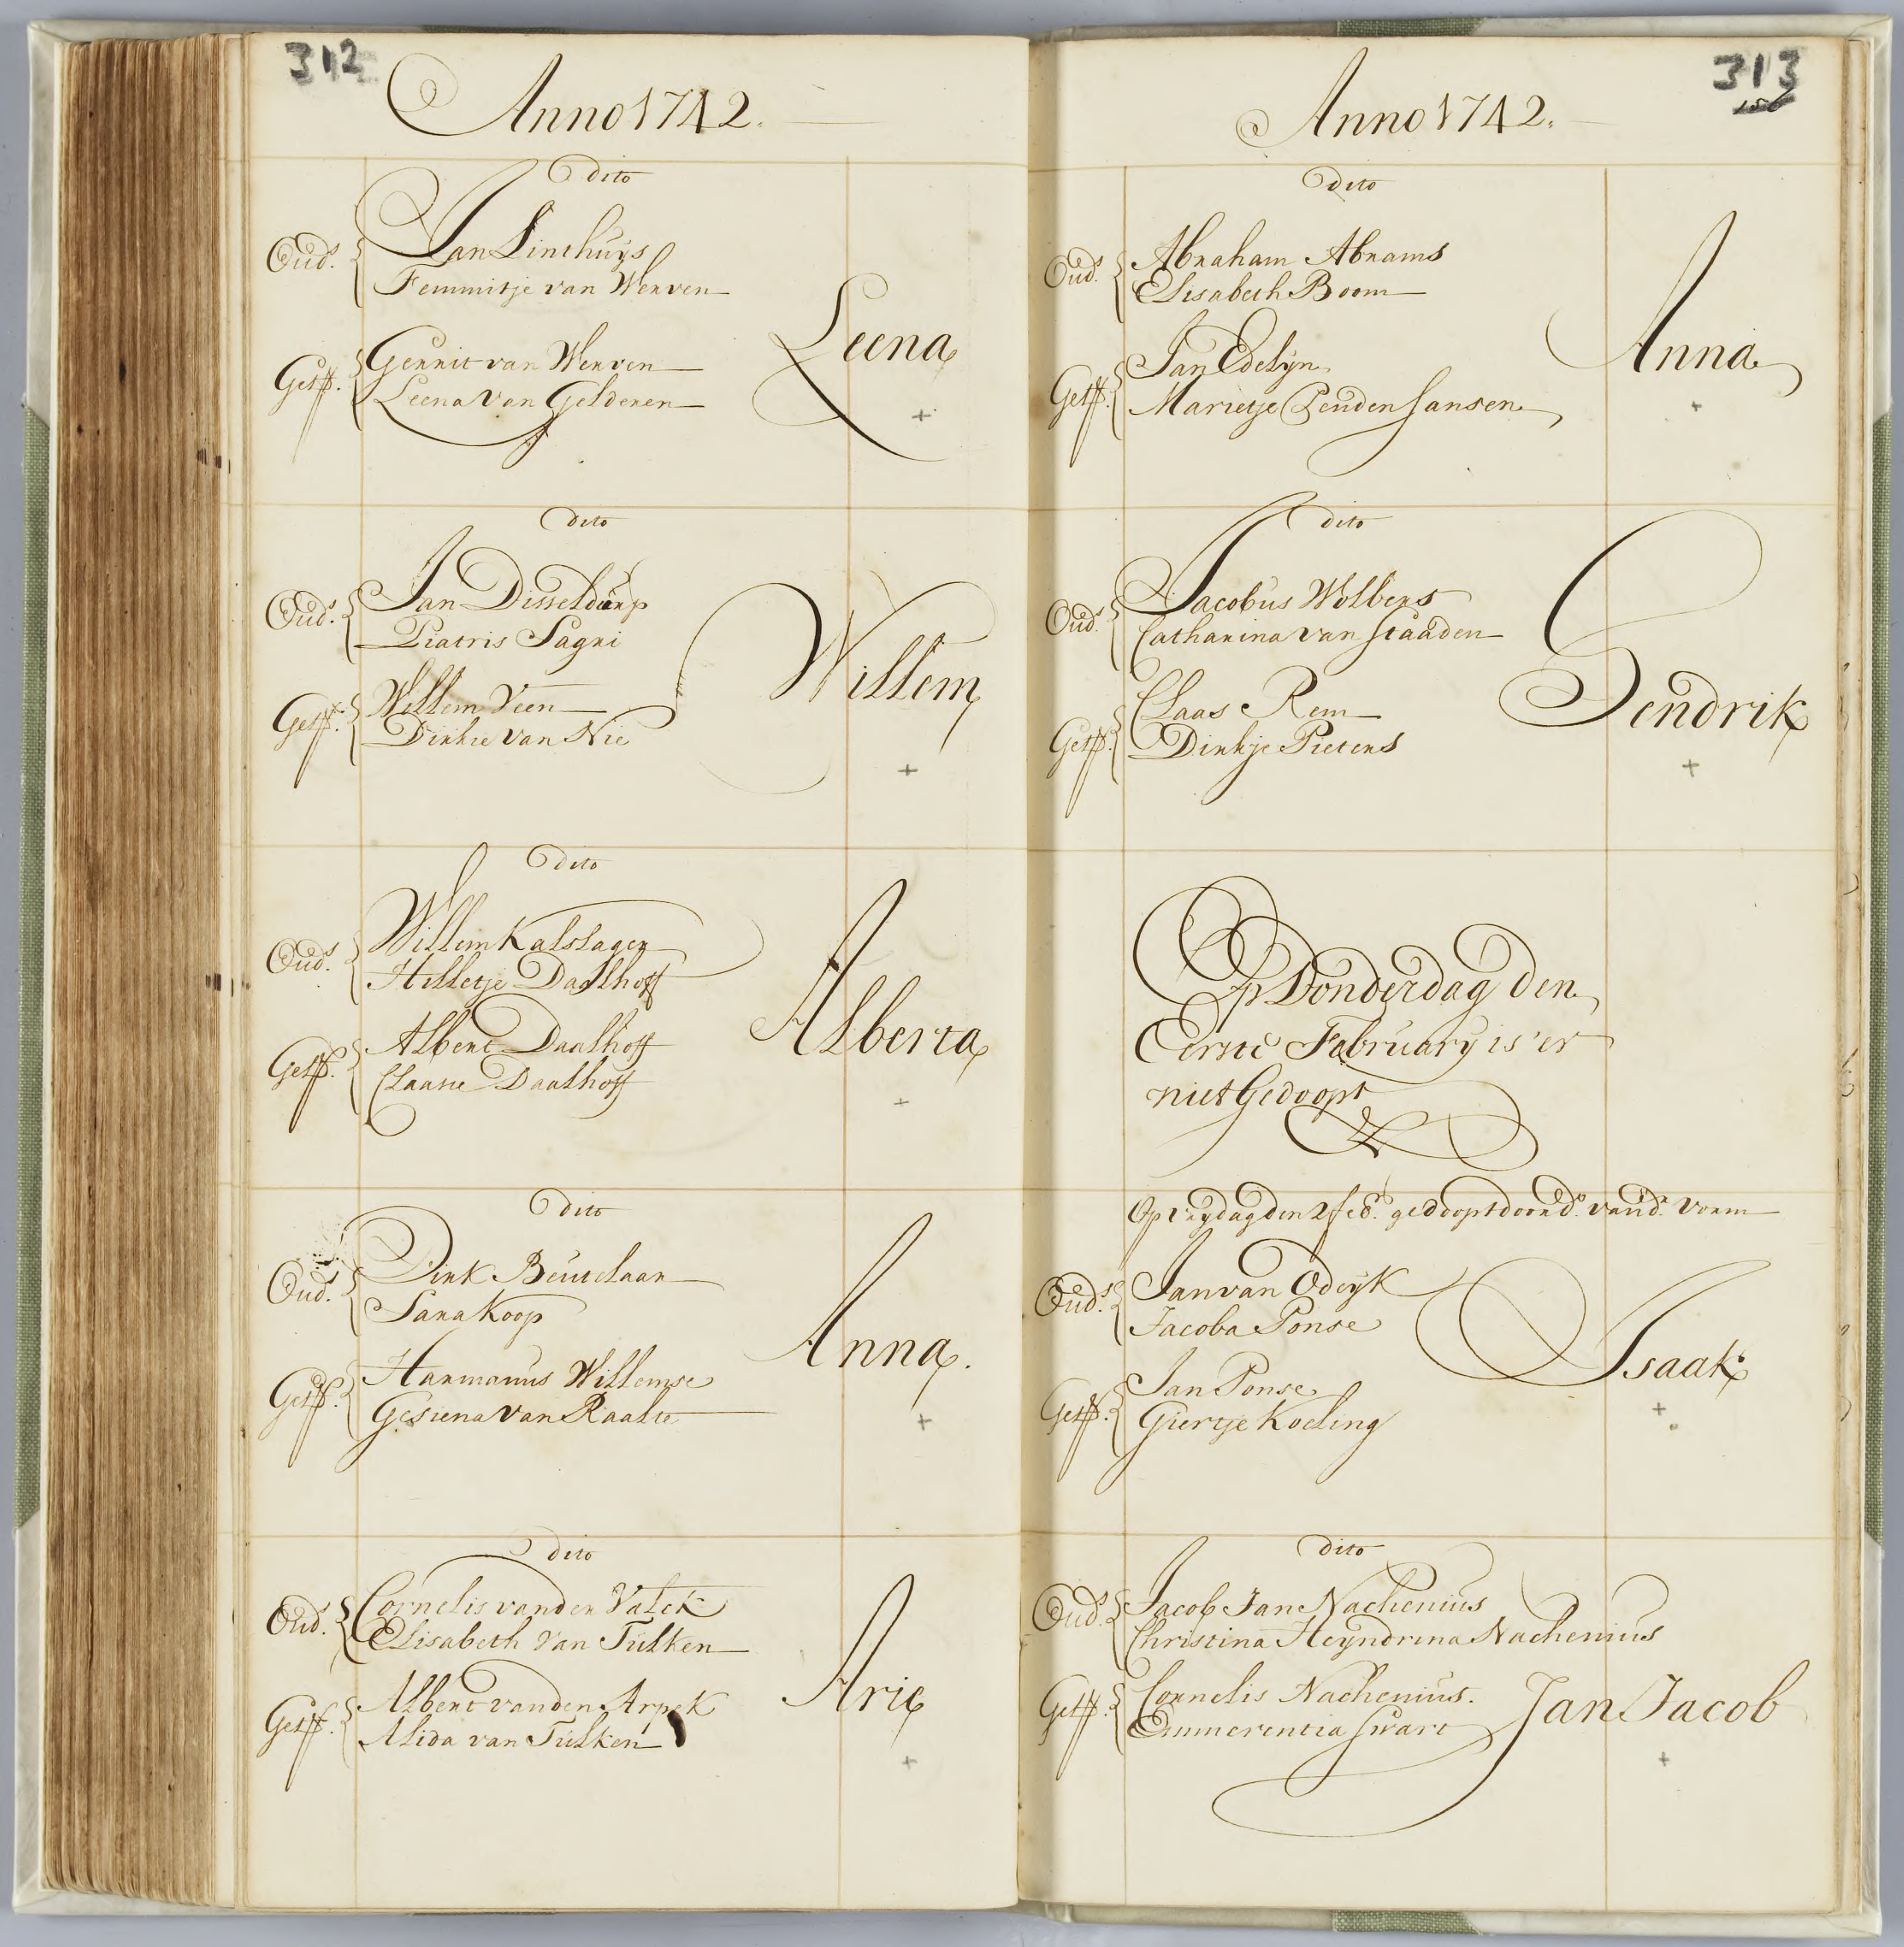 312
Anno 1742.
dito
Oud.s
Jan Linthuys
Femmitje van Werven
Leena
Get.
Gerrit van Werven
Leena van Gelderen
dito
Oud.s
Jan Disseldurp
Piatris Sagri
Willem
Get.
Willem Veen
Dirkie van Nie
dito
Oud.s
Willem Kalslager
Hilletje Daalhoff
Alberta
Get.
Albert Daalhoff
Claasie Daalhoff
dito
Oud.s
Dirk Beuselaar
Sara Koop
Anna.
Get.
Harmanus Willemse
Gesiena van Raalte
dito
Oud.s
Cornelis van der Valck
Elisabeth van Tulken
Arie
Get.
Albert van den
Alida van Tulken
313
Anno 1742.
dito
Oud.s
Abraham Abrams
Elisabeth Boom
Anna
Get.
Jan Edelyn
Marietje Jansen
dito
Oud.s
Jacobus Wolbers
Catharina van Staaden
Hendrik
Get.
Claas Rem
Dirkje Pieters
Op Donderdag den
Eerste February is 'er
niet Gedoopt
Op Vrydag den 2 feb. gedoopt door d.o van d.r Vorm
Oud.s
Jan van Odeyk
Jacoba Ponse
Isaak
Get.
Jan Ponse
Giertje Koeling
dito
Oud.s
Jacob Jan Nachenius
Christina Heyndrina Nachenius
Get.
Cornelis Nachenius.
Emmerentia Swart
Jan Jacob